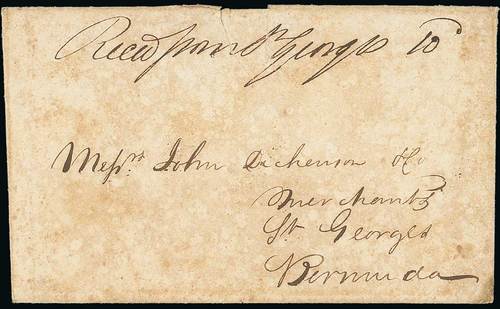 Recd from St Georges 10d
Messrs John Dickenson & Co
Merchants
St Georges
Bermuda